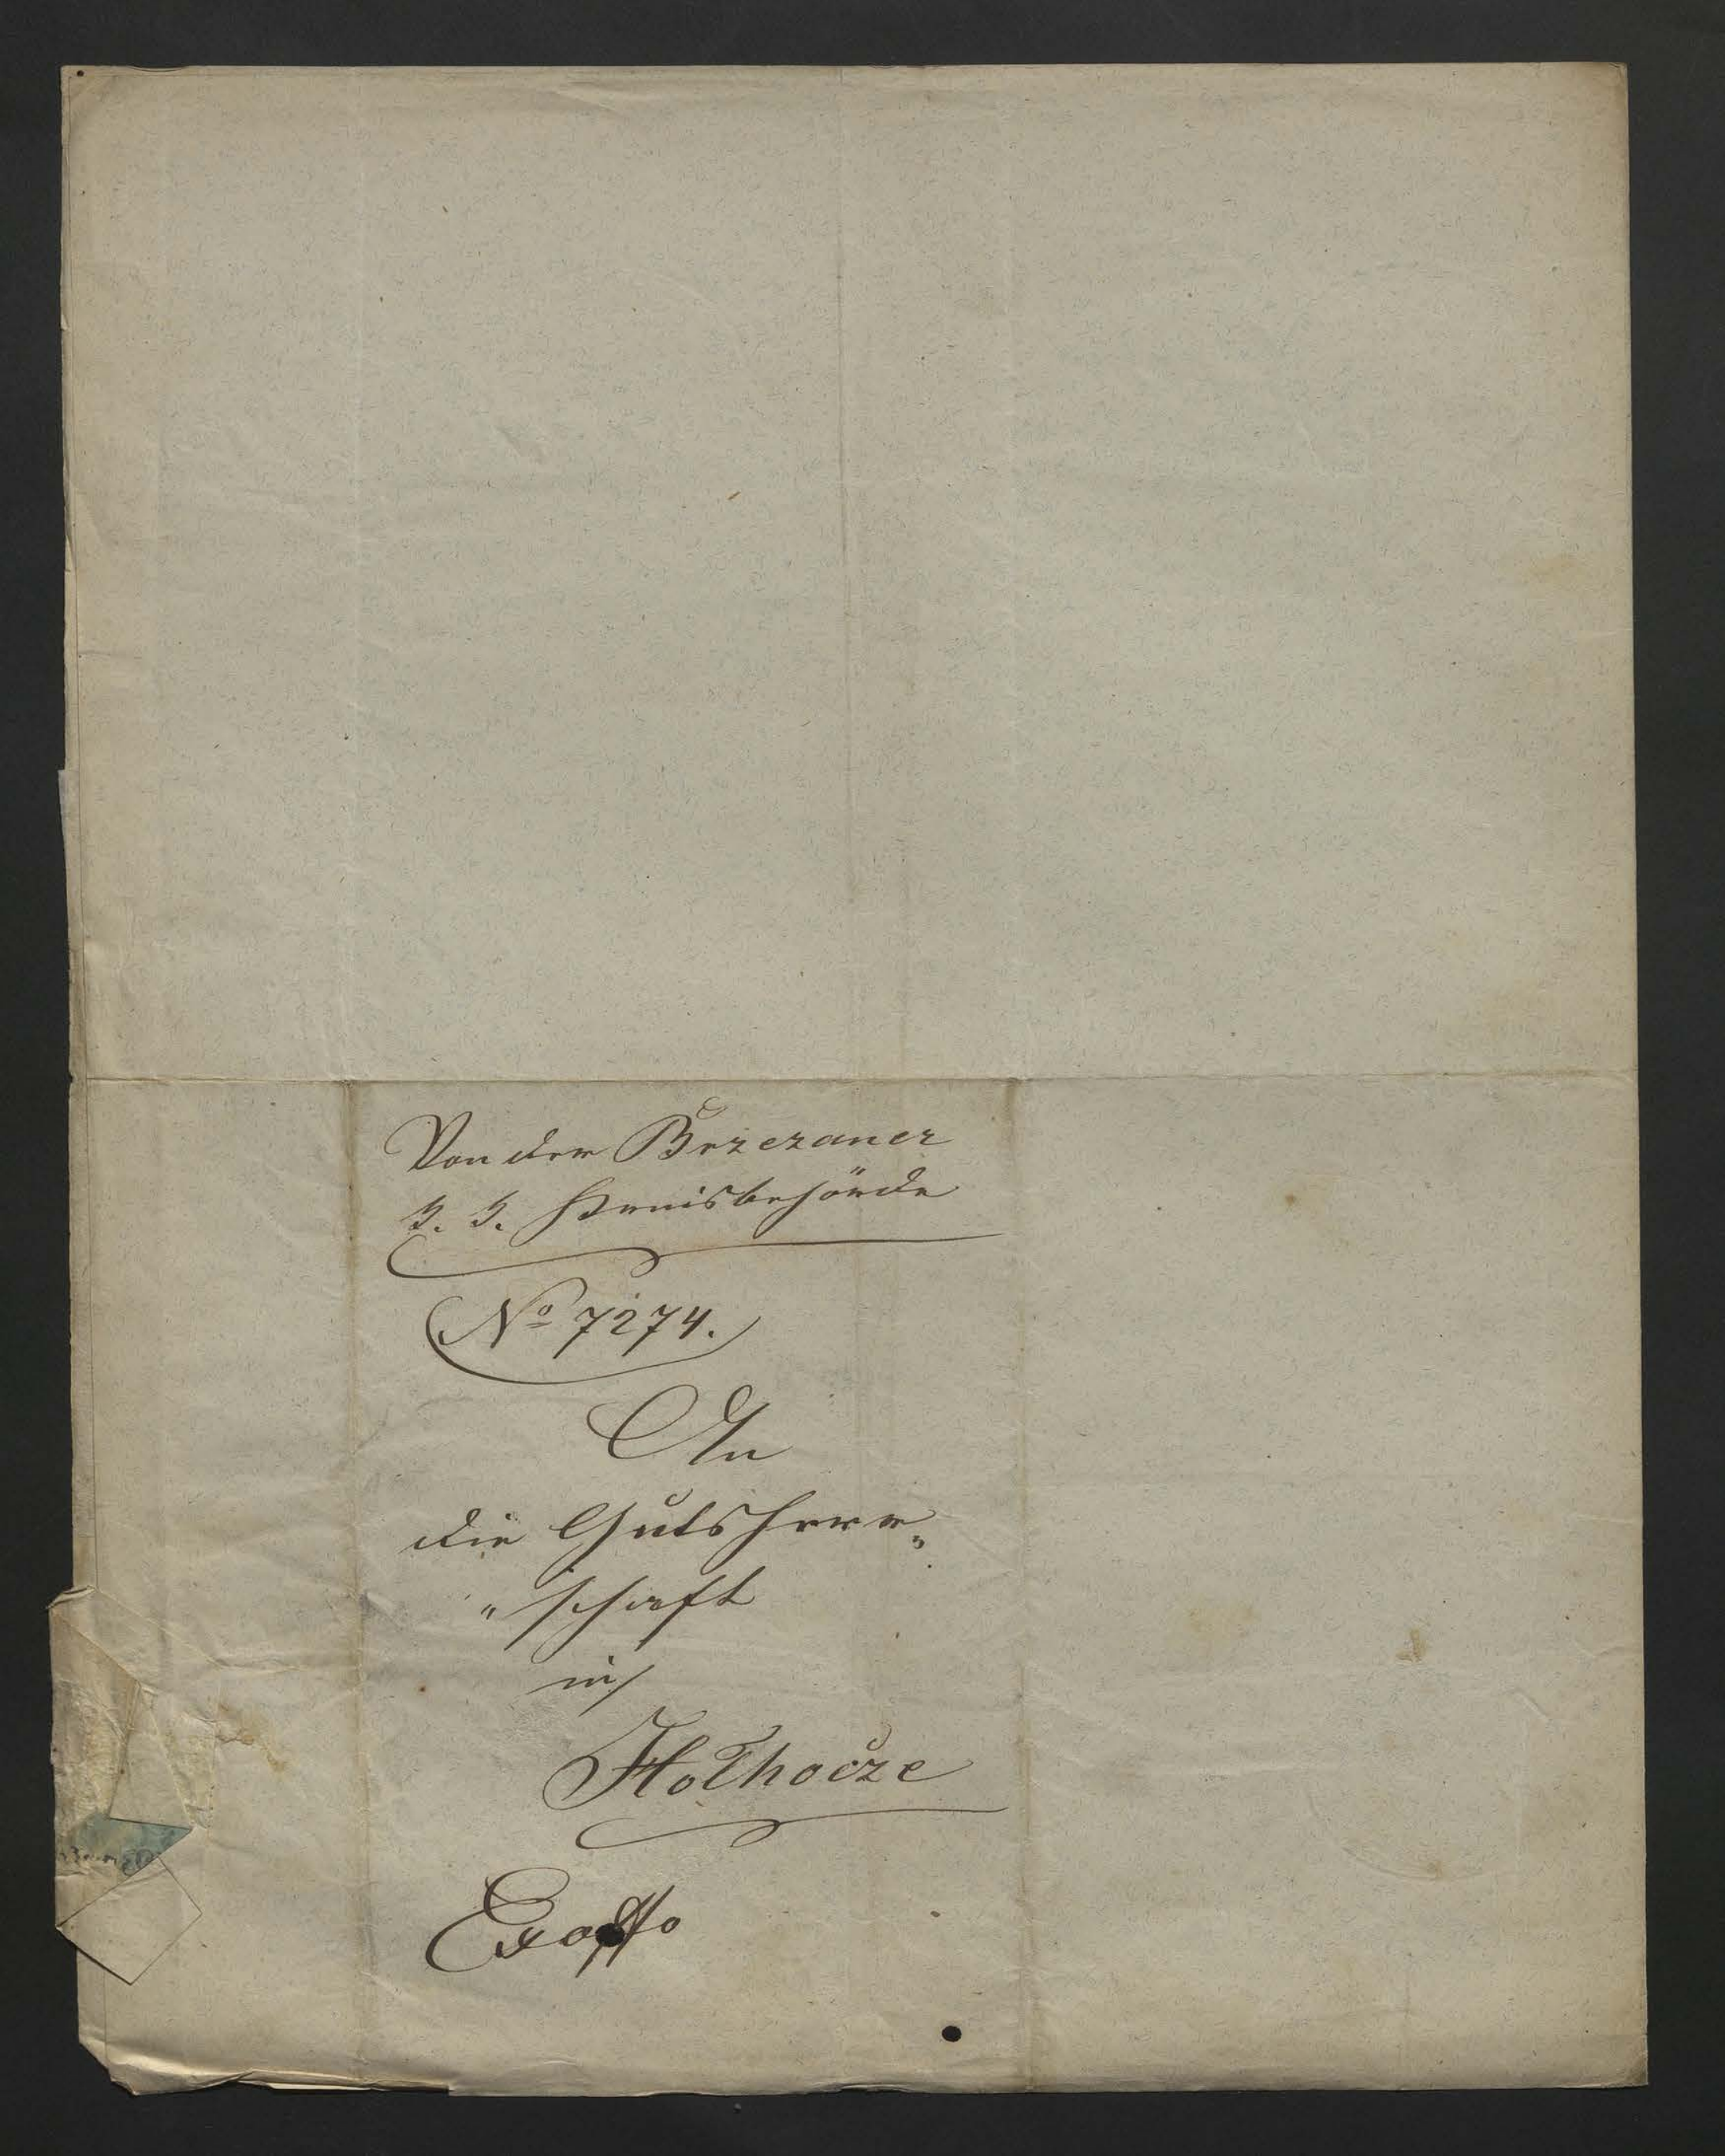 Von der Brzezaner
k. k. Kreisbehörde
No 7274.
An
die Gutsherr„
„schaft
in
Holhocze
Exoffo